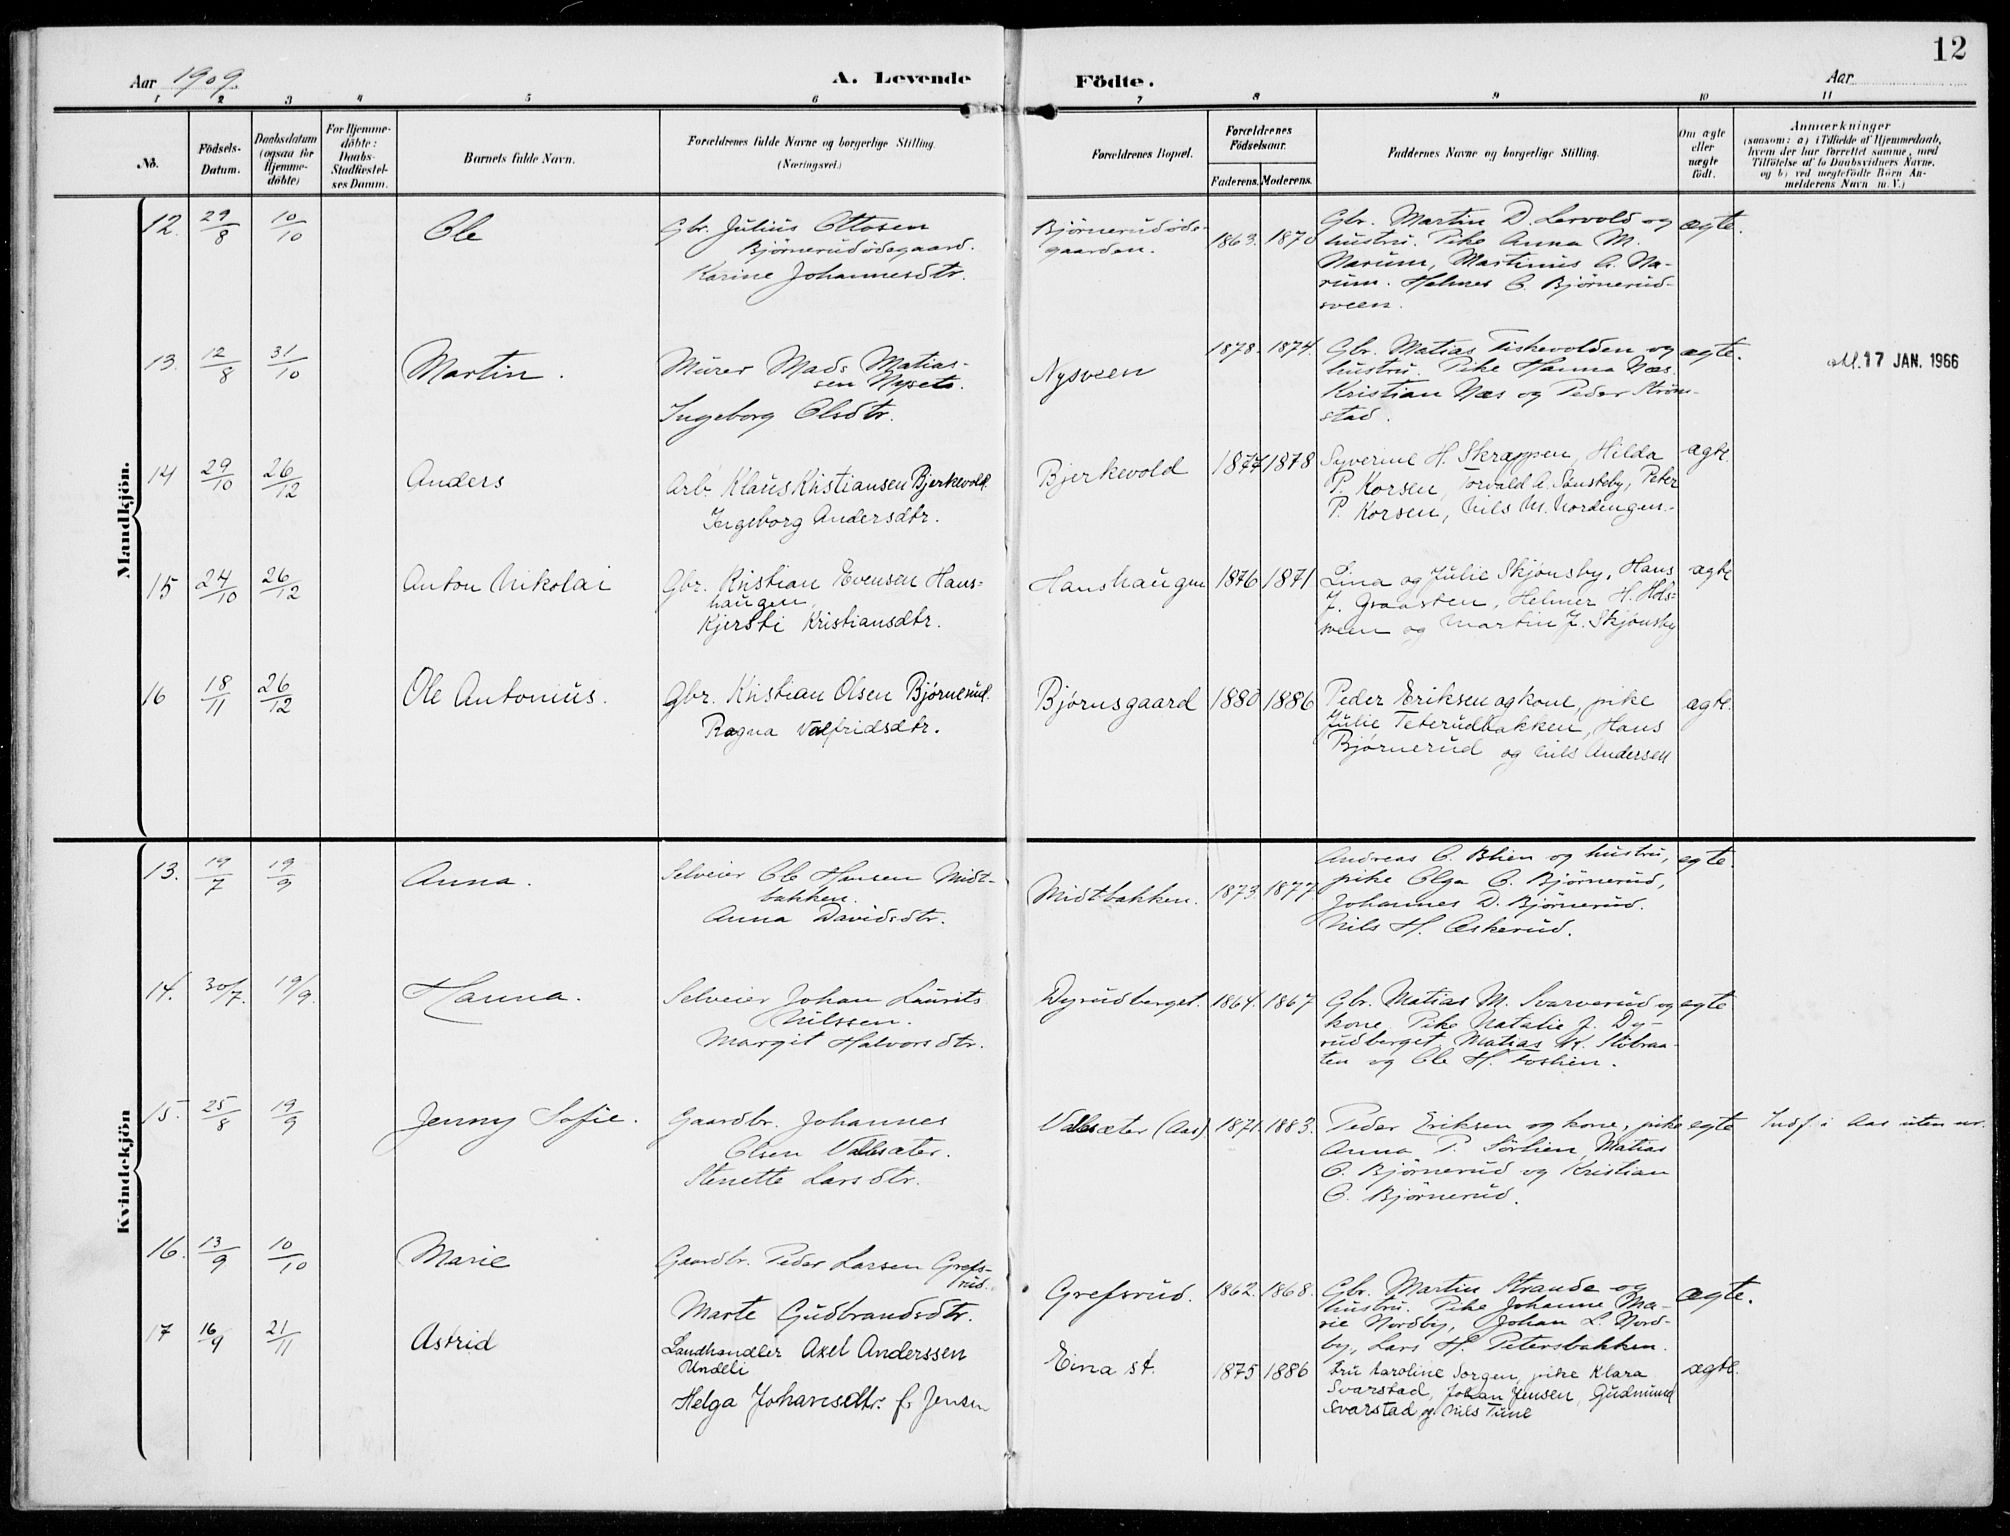 12
Aar 1909.
A. Levende Födte.
Aar
1 2 3 4 5 6 7 8 9 10 11
No.
Födsels-
Datum.
Daabsdatum
(ogsaa for
Hjemme-
döbte)
For Hjemme-
döbte:
Daabs-
Stadfæstel-
ses Datum.
Barnets fulde Navn.
Forældrenes fulde Navne og borgerlige Stilling.
(Næringsvei.)
Forældrenes Bopæl.
Forældrenes
Födselsaar.
Faderens. Moderens.
Faddernes Navne og borgerlige Stilling.
Om ægte
eller
uægte
födt.
Anmærkninger
(saasom: a) i Tilfælde af Hjemmedaab,
hvem der har forrettet samme, med
Tilföielse af to Daabsvidners Navne.
og b) ved uægtefödte Börn An-
melderens Navn m. V.)
Mandkjön.
12. 29/8 10/10 Ole
Gbr. Julius Ottosen
Bjørnerudødegaard.
Karine Johannesdtr.
Bjørnerudøde-
gaarden.
1863. 1870
Gbr. Martin D. Lervold og
hustru. Pike Anna M.
Narum, Martinus A. Na-
rum. Helmer O. Bjørnerud-
sveen.
ægte.
13. 12/8 31/10 Martin.
Murer Mads Matias-
sen Nyseto.
Ingeborg Olsdtr.
Nysveen
1878. 1874.
Gbr. Matias Fiskevolden og
hustru. Pike Hanna Næs
Kristian Næs og Peder Strøm-
stad.
ægte.
17 JAN. 1966
14 29/10 26/12 Anders
Arb. Klaus Kristiansen Bjerkevold.
Ingeborg Andersdtr.
Bjerkevold
1877 1878
Syverine H. Skrappen, Hilda
P. Korsen, Torvald A. Sønsteby, Peter
P. Korsen, Nils M. Nordengen.
ægte.
15 24/10 26/12 Anton Nikolai
Gbr. Kristian Evensen Hans-
haugen,
Kjersti Kristiansdtr.
Hanshaugen
1876 1871
Lina og Julie Skjønsby, Hans
J. Graasten, Helmer H. Hols-
veen og Martin J. Skjønsby
ægte
16 18/11 26/12 Ole Antonius.
Gbr. Kristian Olsen Bjørnerud.
Ragna Valfridsdtr.
Bjørnsgaard
1880 1886
Peder Eriksen og kone, pike
Julie Teterudbakken, Hans
Bjørnerud og Nils Andersen
ægte.
Kvindekjön
13. 19/7 19/9 Anna.
Selveier Ole Hansen Midt-
bakken.
Anna Davidsdtr.
Midtbakken.
1873. 1877.
Andreas O. Blien og hustru,
pike Olga O. Bjørnerud,
Johannes D. Bjørnerud.
Nils H. Askerud.
egte.
14. 30/7. 19/9. Hanna.
Selveier Johan Laurits
Nilssen.
Margit Halvorsdtr.
Dyrudberget.
1864. 1867.
Gbr. Matias M. Svarverud og
kone. Pike Natalie J. Dy-
rudberget, Matias K. Stubraa-
ten og Ole H. Foslien.
egte
15. 25/8 19/9 Jenny Sofie.
Gaardbr. Johannes
Olsen Valsæter.
Stenette Larsdtr.
Valsæter (Aas)
1871. 1883.
Peder Eriksen og kone, pike
Anna P. Sørlien, Matias
O. Bjørnerud og Kristian
O. Bjørnerud.
egte
Indf. i Aas uten nr.
16. 13/9 10/10 Marie
Gaardbr. Peder Larsen Grefs-
rud.
Marte Gudbrandsdtr.
Grefsrud.
1862. 1868.
Gbr. Martin Strande og
hustru. Pike Johanne Ma-
rie Nordby, Johan L. Nord-
by, Lars H. Petersbakken.
ægte.
17 16/9 21/11 Astrid
Landhandler Axel Anderssen
Undeli
Helga Johansdtr. f. Jensen
Eina st.
1875 1886
Fru Karoline Sorgen, pike Klara
Svarstad, Johan Jensen, Gudmund
Svarstad og Nils Tune
ægte.